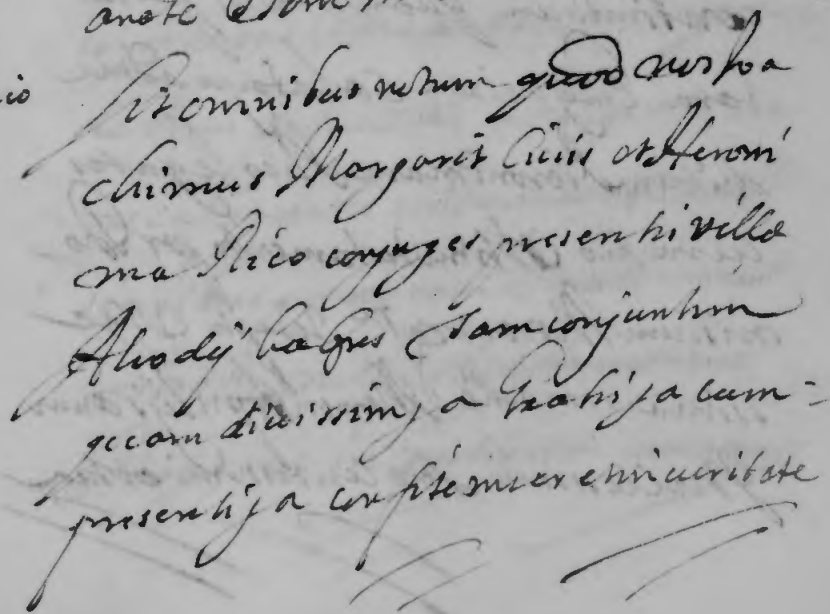 Sit omnibus notum quod nos Joa
chimus Margarit Civis et Heroni
ma Rico conjuges presenti villæ
Alcodij tam conjunctim
quam divisim, gratis ja cum =
presentij a confitemur et in veritate